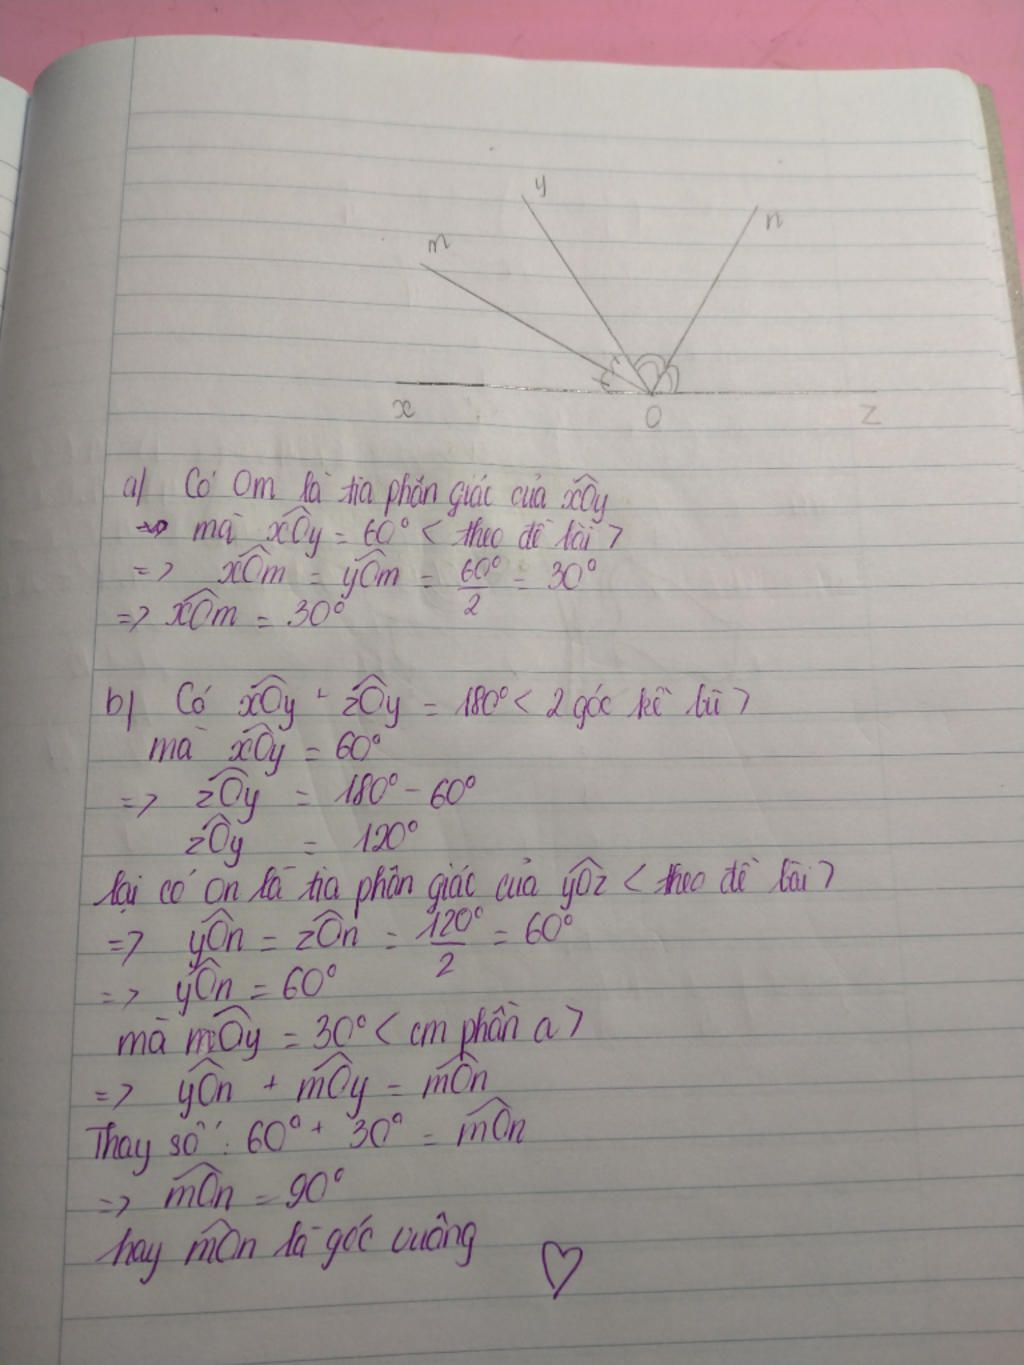 y
n
m
x
O
z
a) Có Om là tia phân giác của xÔy
=> mà xÔy = 60° < theo đề bài >
=> xÔm = yÔm = 60°/2 = 30°
=> xÔm = 30°
b) Có xÔy + zÔy = 180° < 2 góc kề bù >
mà xÔy = 60°
=> zÔy = 180° - 60°
zÔy = 120°
lại có On là tia phân giác của yÔz < theo đề bài >
=> yÔn = zÔn = 120°/2 = 60°
=> yÔn = 60°
mà mÔy = 30° < cm phần a >
=> yÔn + mÔy = mÔn
Thay số : 60° + 30° = mÔn
=> mÔn = 90°
hay mÔn là góc vuông